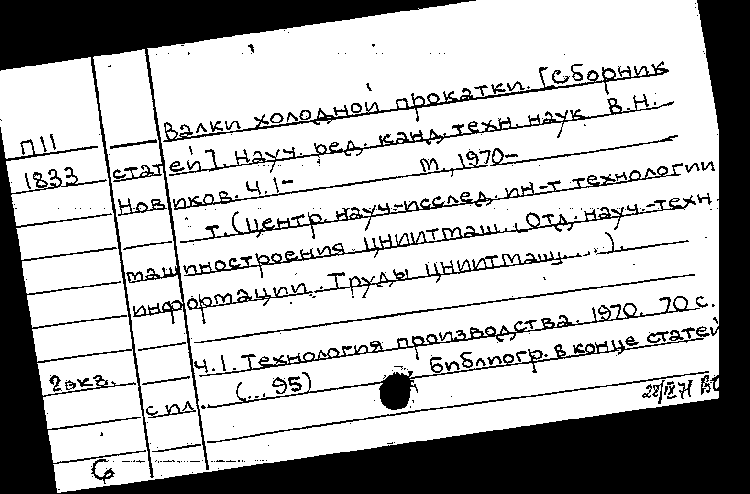 Валки холодной прокатки. [Сборник
П11
1833
статей]. Науч. ред. канд. техн. наук В.Н.
Новиков. Ч.1- М., 1970-
т. (Центр. науч.-исслед. ин-т технологии
машиностроения ЦНИИТМАШ. Отд. науч.-техн.
информации. Труды ЦНИИТМАШ....).
Ч.1. Технология производства. 1970. 70 с.
2 экз.
с ил. (...95) Библиогр. в конце статей
71